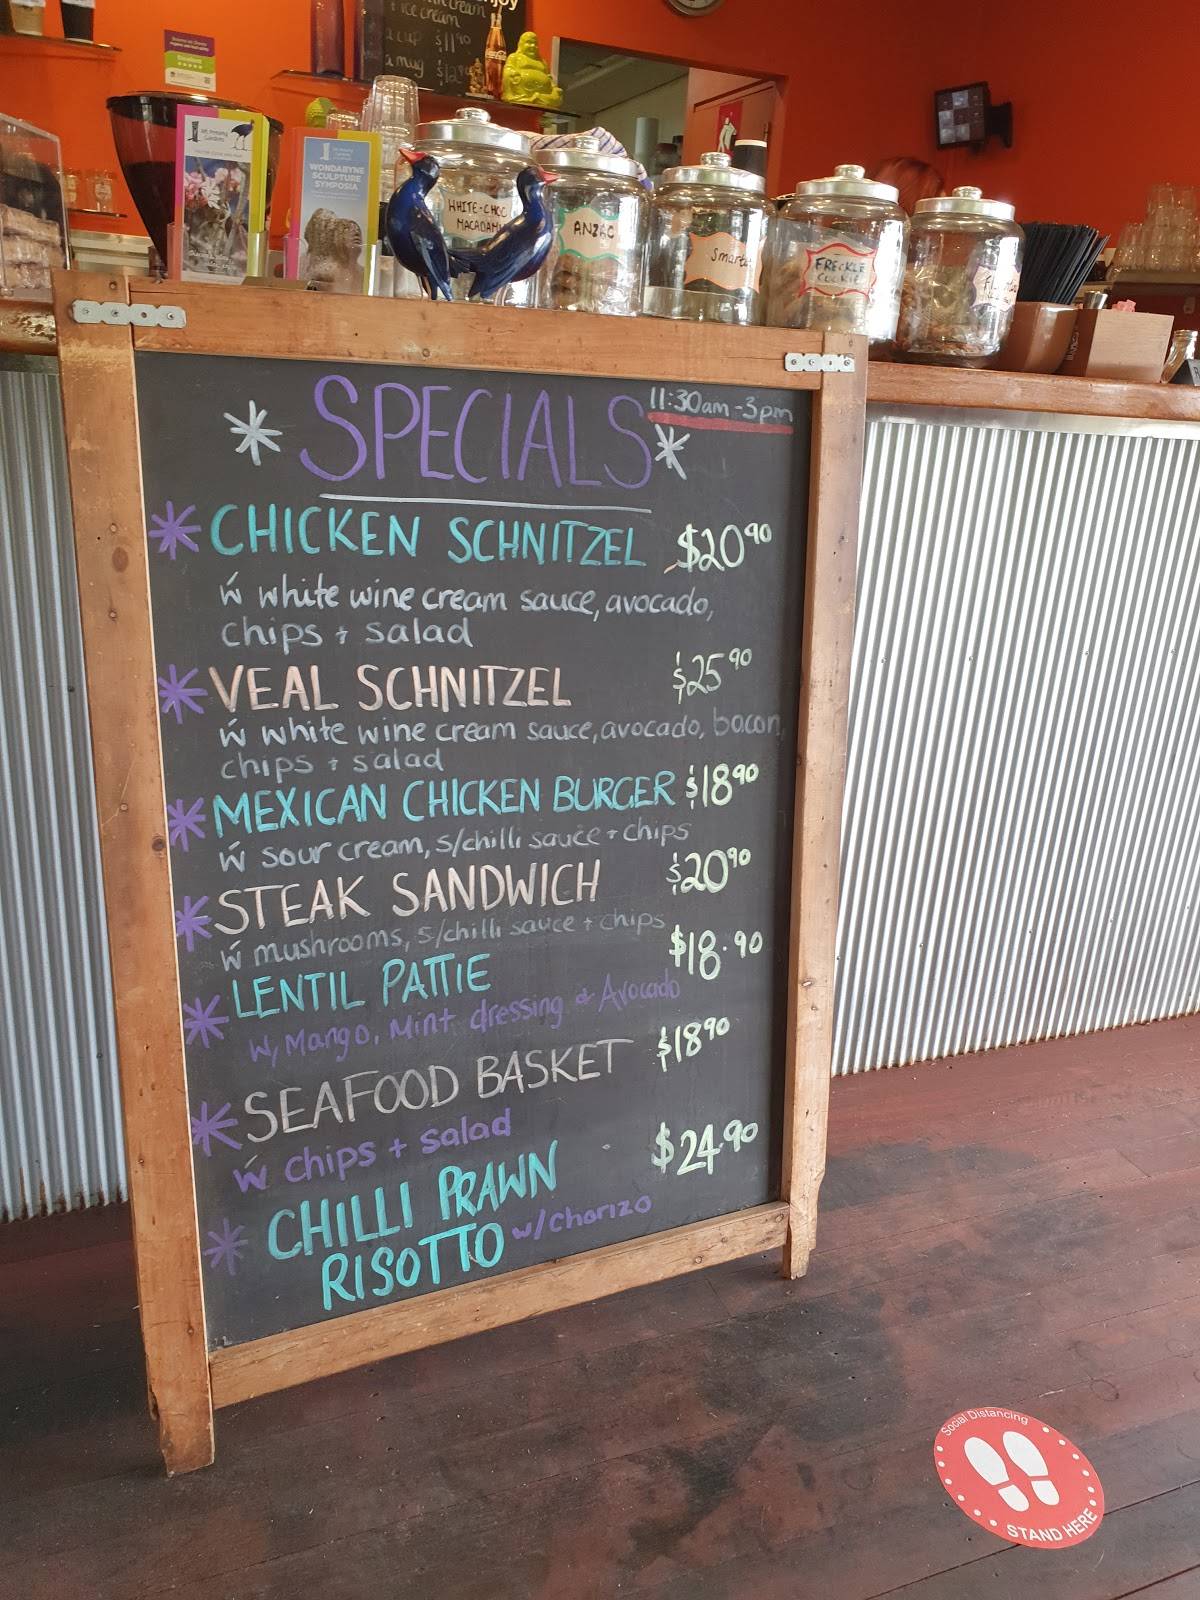 enjoy
+ ice cream
a cup $11.90
a mug
Mt Annan
Gardens
WONDABYNE
SCULPTURE
SYMPOSIA
WHITE-CHOC
MACADAMI
ANZAC
Smart
FRECKLE
COOKIE
11:30am - 3pm
SPECIALS
CHICKEN SCHNITZEL $20.90
w white wine cream sauce, avocado,
chips + salad
VEAL SCHNITZEL $25.90
w white wine cream sauce, avocado, bacon,
chips + salad
MEXICAN CHICKEN BURGER $18.90
w sour cream, s/chilli sauce + chips
STEAK SANDWICH $20.90
w mushrooms, s/chilli sauce + chips
LENTIL PATTIE $18.90
w/ Mango, Mint dressing & Avocado
SEAFOOD BASKET $18.90
w chips + salad
CHILLI PRAWN $24.90
RISOTTO w/Chorizo
Social Distancing
STAND HERE